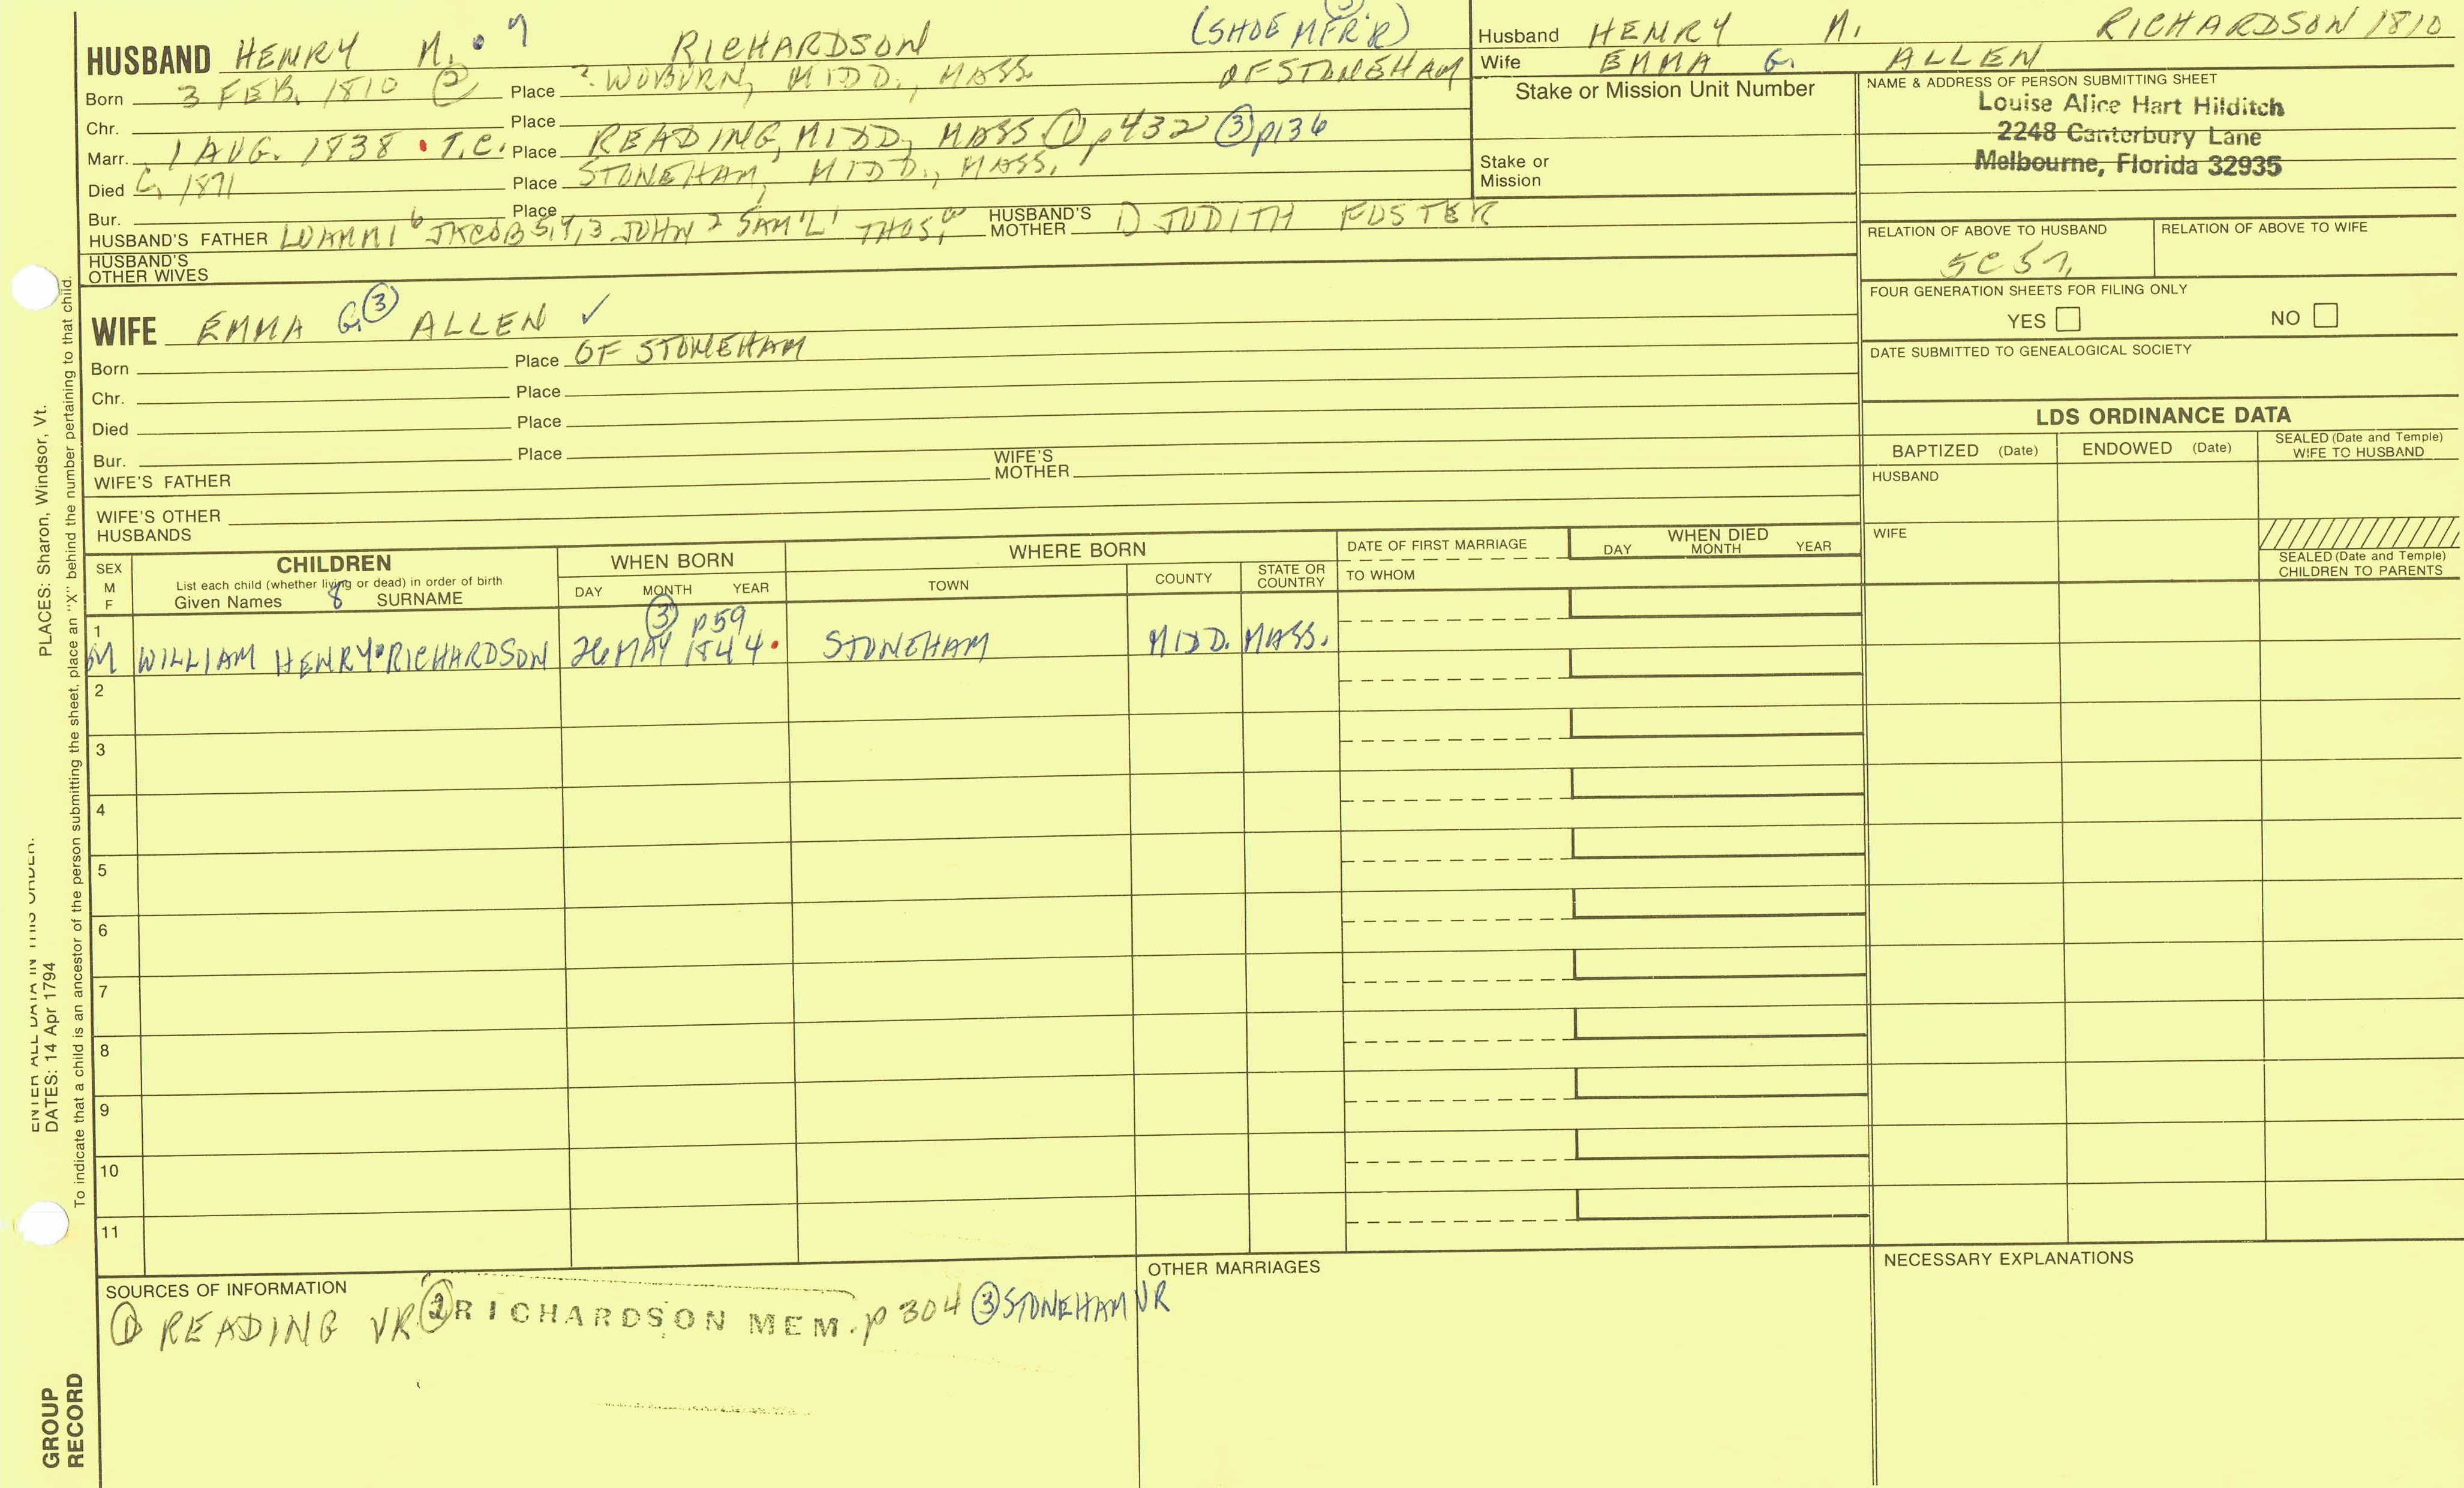 HUSBAND HENRY M. 7 RICHARDSON (SHOE MFR'R)
Born 3 FEB. 1810 ② Place ? WOBURN, MIDD., MASS OF STONEHAM
Chr. Place
Marr. 1 AUG. 1838 • T.C. Place READING, MIDD, MASS ① p432 ③ p136
Died 1871 Place STONEHAM, MIDD., MASS.
Bur. Place
HUSBAND'S FATHER 6 JACOB 5,4,3 JOHN 2 SAM'L 1 THOS. HUSBAND'S MOTHER JUDITH FOSTER
HUSBAND'S OTHER WIVES
Husband HENRY M. RICHARDSON 1810
Wife EMMA G. ALLEN
Stake or Mission Unit Number
Stake or Mission
NAME & ADDRESS OF PERSON SUBMITTING SHEET
Louise Alice Hart Hilditch
2248 Canterbury Lane
Melbourne, Florida 32935
RELATION OF ABOVE TO HUSBAND RELATION OF ABOVE TO WIFE
FOUR GENERATION SHEETS FOR FILING ONLY
YES NO
DATE SUBMITTED TO GENEALOGICAL SOCIETY
WIFE EMMA G. ③ ALLEN ✓
Born Place OF STONEHAM
Chr. Place
Died Place
Bur. Place
WIFE'S FATHER WIFE'S MOTHER
WIFE'S OTHER HUSBANDS
LDS ORDINANCE DATA
BAPTIZED (Date) ENDOWED (Date) SEALED (Date and Temple) WIFE TO HUSBAND
HUSBAND
WIFE
SEALED (Date and Temple) CHILDREN TO PARENTS
SEX M F
CHILDREN
List each child (whether living or dead) in order of birth
Given Names 8 SURNAME
WHEN BORN
DAY MONTH YEAR
WHERE BORN
TOWN COUNTY STATE OR COUNTRY
DATE OF FIRST MARRIAGE
TO WHOM
WHEN DIED
DAY MONTH YEAR
③ p59
1 M WILLIAM HENRY RICHARDSON 26 MAY 1844 • STONEHAM MIDD. MASS.
2
3
4
5
6
7
8
9
10
11
SOURCES OF INFORMATION
① READING VR ② RICHARDSON MEM. p 304 ③ STONEHAM VR
OTHER MARRIAGES
NECESSARY EXPLANATIONS
PLACES: Sharon, Windsor, Vt.
DATES: 14 Apr 1794
ENTER ALL DATA IN THIS ORDER:
To indicate that a child is an ancestor of the person submitting the sheet, place an "X" behind the number pertaining to that child.
GROUP RECORD